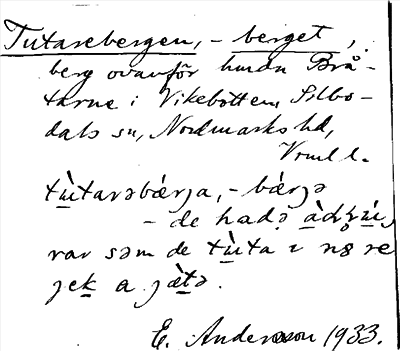 Tutarebergen, – berget,
berg ovanför hmdn Brå-
tarne i Vikebotten, Silbo-
dals sn, Nordmarks hd,
Vrml l.
tùtarəbærja, – bærjə
– de hadə
rar səm de tùta i
jek a jætə.
E. Andersson 1933.